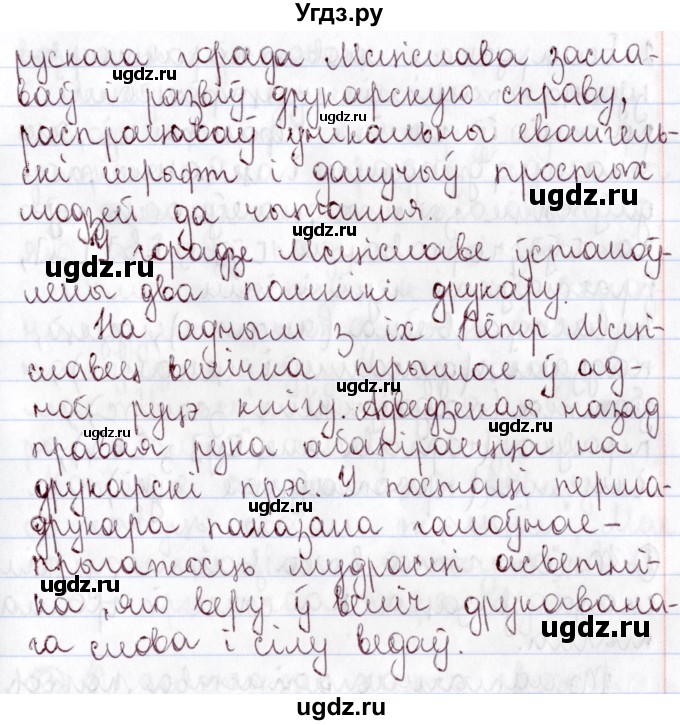 Угдз.ру
рускага горада Мсціслава засна-
ваў і развіў друкарскую справу,
распрацаваў унікальны евангель-
скі шрыфт і далучыў простых
людзей да чытання.
У горадзе Мсціславе ўстаноў-
лены два помнікі друкару.
На адным з іх Пётр Мсці-
славец велічна трымае ў ад-
ной руцэ кнігу. Адведзеная назад
правая рука абапіраецца на
друкарскі прэс. У постаці перша-
друкара паказана галоўнае –
прыгажосць мудрасці асветні-
ка, яго веру ў веліч друкавана-
га слова і сілу ведаў.
ugdz.ru
ugdz.ru
ugdz.ru
ugdz.ru
ugdz.ru
ugdz.ru
ugdz.ru
ugdz.ru
ugdz.ru
ugdz.ru
ugdz.ru
ugdz.ru
ugdz.ru
ugdz.ru